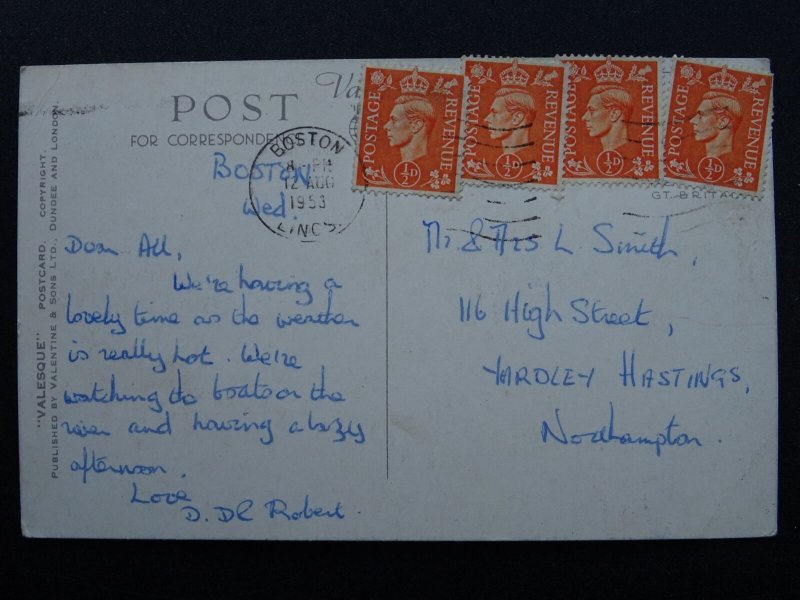 POST
FOR CORRESPONDEN
"VALESQUE" POSTCARD. COPYRIGHT.
PUBLISHED BY VALENTINE & SONS LTD. DUNDEE AND LONDON.
BOSTON
8 - PM
12 AUG
1953
LINCS.
POSTAGE REVENUE
½D
POSTAGE REVENUE
½D
POSTAGE REVENUE
½D
POSTAGE REVENUE
½D
GT. BRITA
BOSTON
Wed.
Dear All,
We're having a
lovely time as the weather
is really hot. We're
watching the boats on the
river and having a lazy
afternoon.
Love
D. Robert.
Mr & Mrs L. Smith,
116 High Street,
YARDLEY HASTINGS,
Northampton.